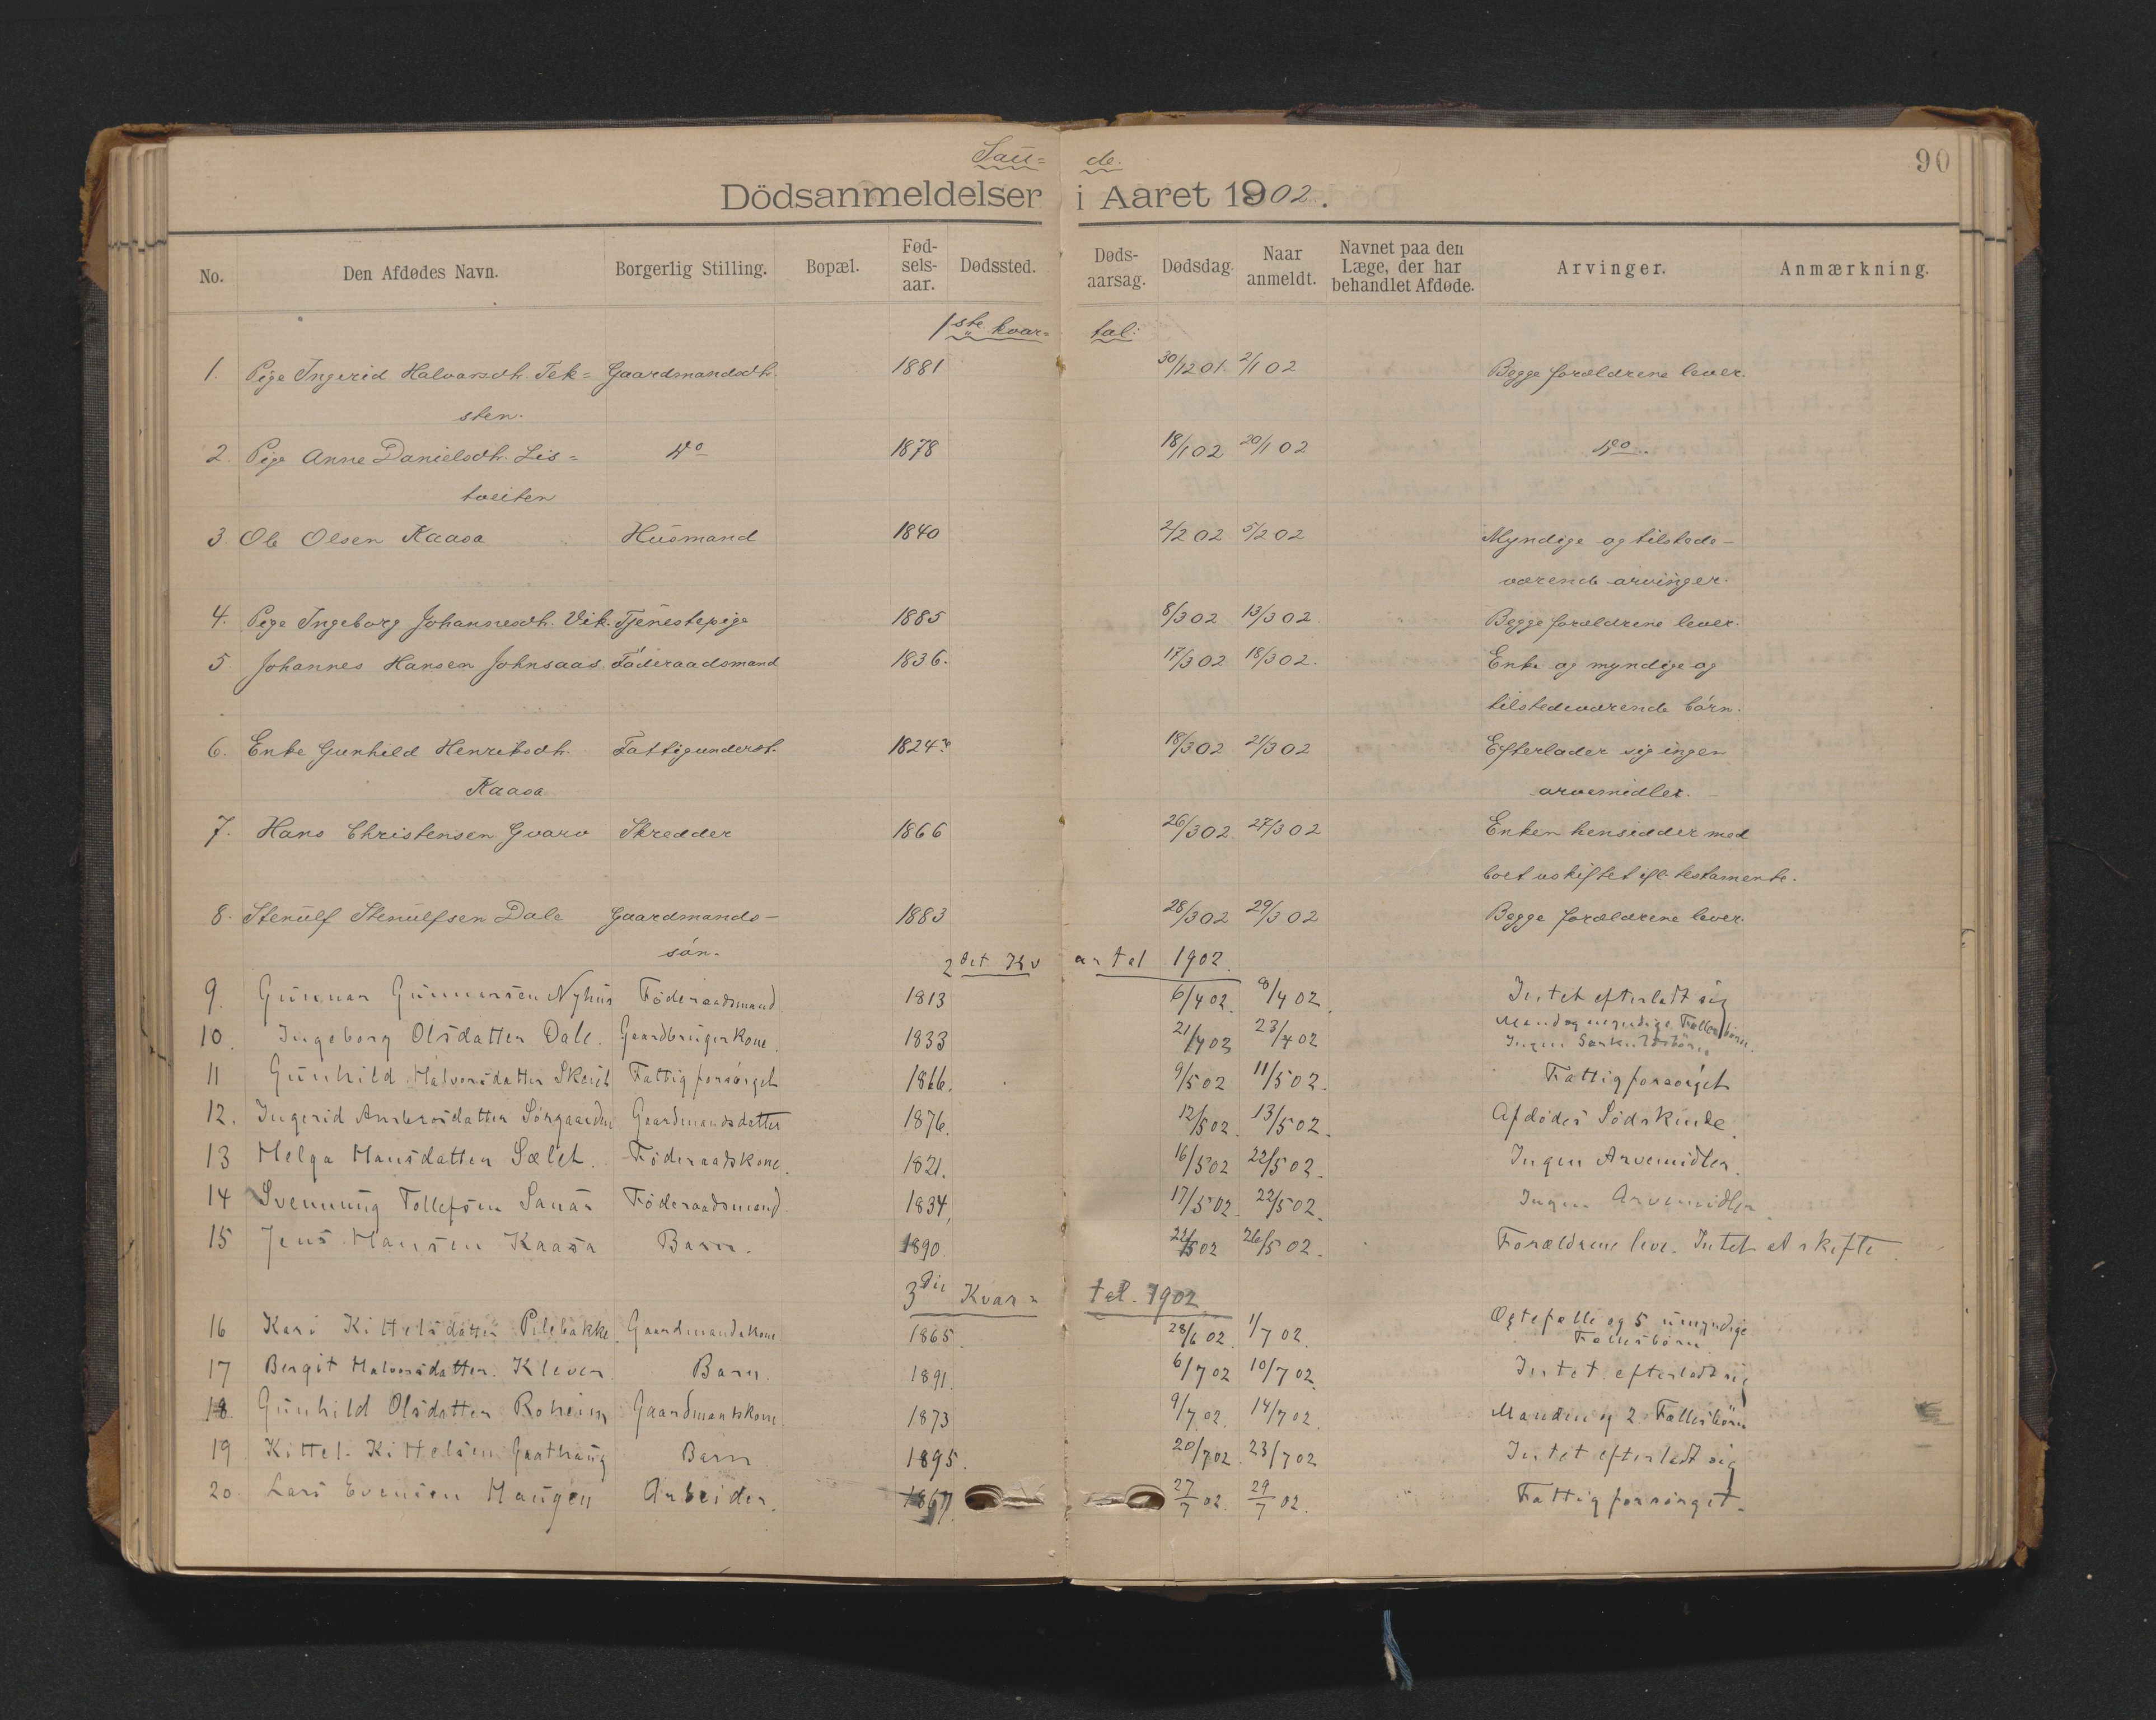 Sau= de.
90
Dödsanmeldelser i Aaret 1902.
No. Den Afdødes Navn. Borgerlig Stilling. Bopæl. Fødselsaar. Dødssted. Dødsaarsag. Dødsdag. Naar anmeldt. Navnet paa den Læge, der har behandlet Afdøde. Arvinger. Anmærkning.
1ste kvar= tal:
1. Pige Ingerid Halvorsdh. Tek= Gaardmandsdh. 1881 30/12 01. 2/1 02 Begge forældrene lever.
sten.
2. Pige Anne Danielsdh. Lis= Do 1878 18/1 02 20/1 02 Do.
tveiten
3. Ole Olsen Kaasa Husmand 1840 2/2 02 5/2 02 Myndige og tilstede-
værende arvinger.
4. Pige Ingeborg Johannesdh. Vik. Tjenestepige 1885 8/3 02 13/3 02 Begge forældrene lever.
5 Johannes Hansen Johnsaas. Föderaadsmand 1836. 17/3 02 18/3 02. Enke og myndige og
tilstedeværende børn.
6. Enke Gunhild Henriksdh. Fattigunderst. 1824? 18/3 02 21/3 02 Efterlader sig ingen
Kaasa arvemidler.
7. Hans Christensen Gvarv Skredder 1866 26/3 02 27/3 02 Enken hensidder med
boet uskiftet ifl. testamente.
8. Stenulf Stenulfsen Dale Gaardmands- 1883 28/3 02 29/3 02 Begge forældrene lever.
søn.
2det Kv artal 1902.
9. Gunnar Gunnarsen Nyhus Föderaadsmand 1813 6/4 02. 8/4 02. Intet efterladt sig
10. Ingeborg Olsdatter Dale. Gaardbrugerkone. 1833 21/4 02 23/4 02 Mand og myndige Fællesbörn.
Ingen Særkuldsbörn
11 Gunhild Halvorsdatter Fattigforsørget 1866. 9/5 02 11/5 02. Fattigforsørget
12. Ingerid Ambrosdatter Sörgaarden Gaardmandsdatter 1876. 12/5 02. 13/5 02. Afdödes Södskinde.
13 Helga Hansdatter Sælet. Föderaadskone. 1821. 16/5 02 22/5 02. Ingen Arvemidler.
14 Svennung Tollefsen Sanar Föderaadsmand 1834, 17/5 02. 22/5 02. Ingen Arvemidler.
15 Jens Hansen Kaasa Barn. 1890. 22/5 02 26/5 02. Forældrene leve. Intet at skifte.
3die Kvar= tal. 1902.
16 Kari Kittelsdatter Pilebakke. Gaardmandskone 1865. 28/6 02. 1/7 02. Ægtefælle og 5 umyndige
Fællesbørn.
17 Bergit Halvorsdatter. Kleven. Barn. 1891. 6/7 02 10/7 02. Intet efterladt sig
18. Gunhild Olsdatter Roheim Gaardmandskone. 1873 9/7 02. 14/7 02. Manden og 2 Fællesbörn
19 Kittel Kittelsen Barn 1895. 20/7 02. 23/7 02 Intet efterladt sig
20. Lars Evensen Haugen Arbeider. 1867. 27/7 02. 29/7 02. Fattigforsørget.